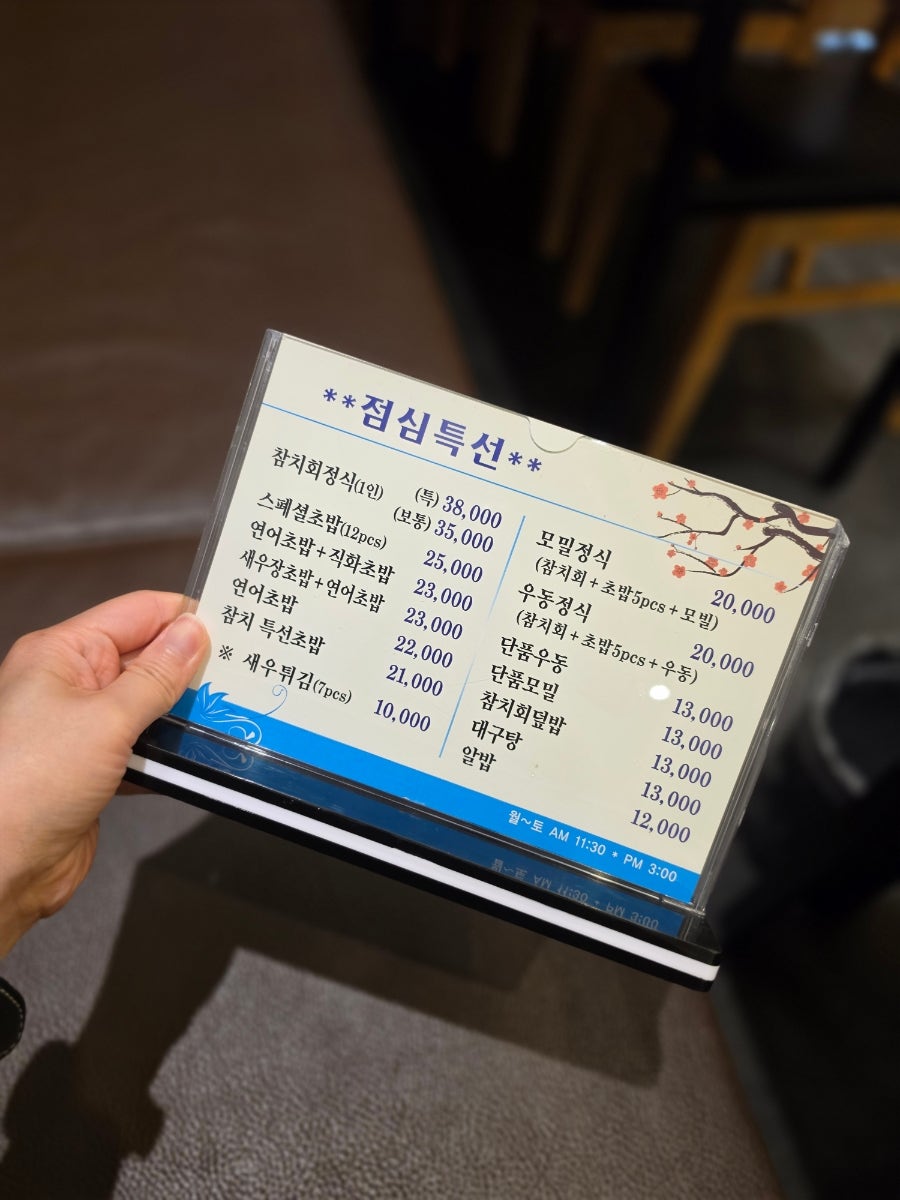 **점심특선**
참치회정식(1인) (특) 38,000
(보통) 35,000
스페셜초밥(12pcs) 25,000
연어초밥+직화초밥 23,000
새우장초밥+연어초밥 23,000
연어초밥 22,000
참치 특선초밥 21,000
※ 새우튀김(7pcs) 10,000
모밀정식
(참치회+초밥5pcs+모밀) 20,000
우동정식
(참치회+초밥5pcs+우동) 20,000
단품우동 13,000
단품모밀 13,000
참치회덮밥 13,000
대구탕 13,000
알밥 12,000
월~토 AM 11:30 * PM 3:00